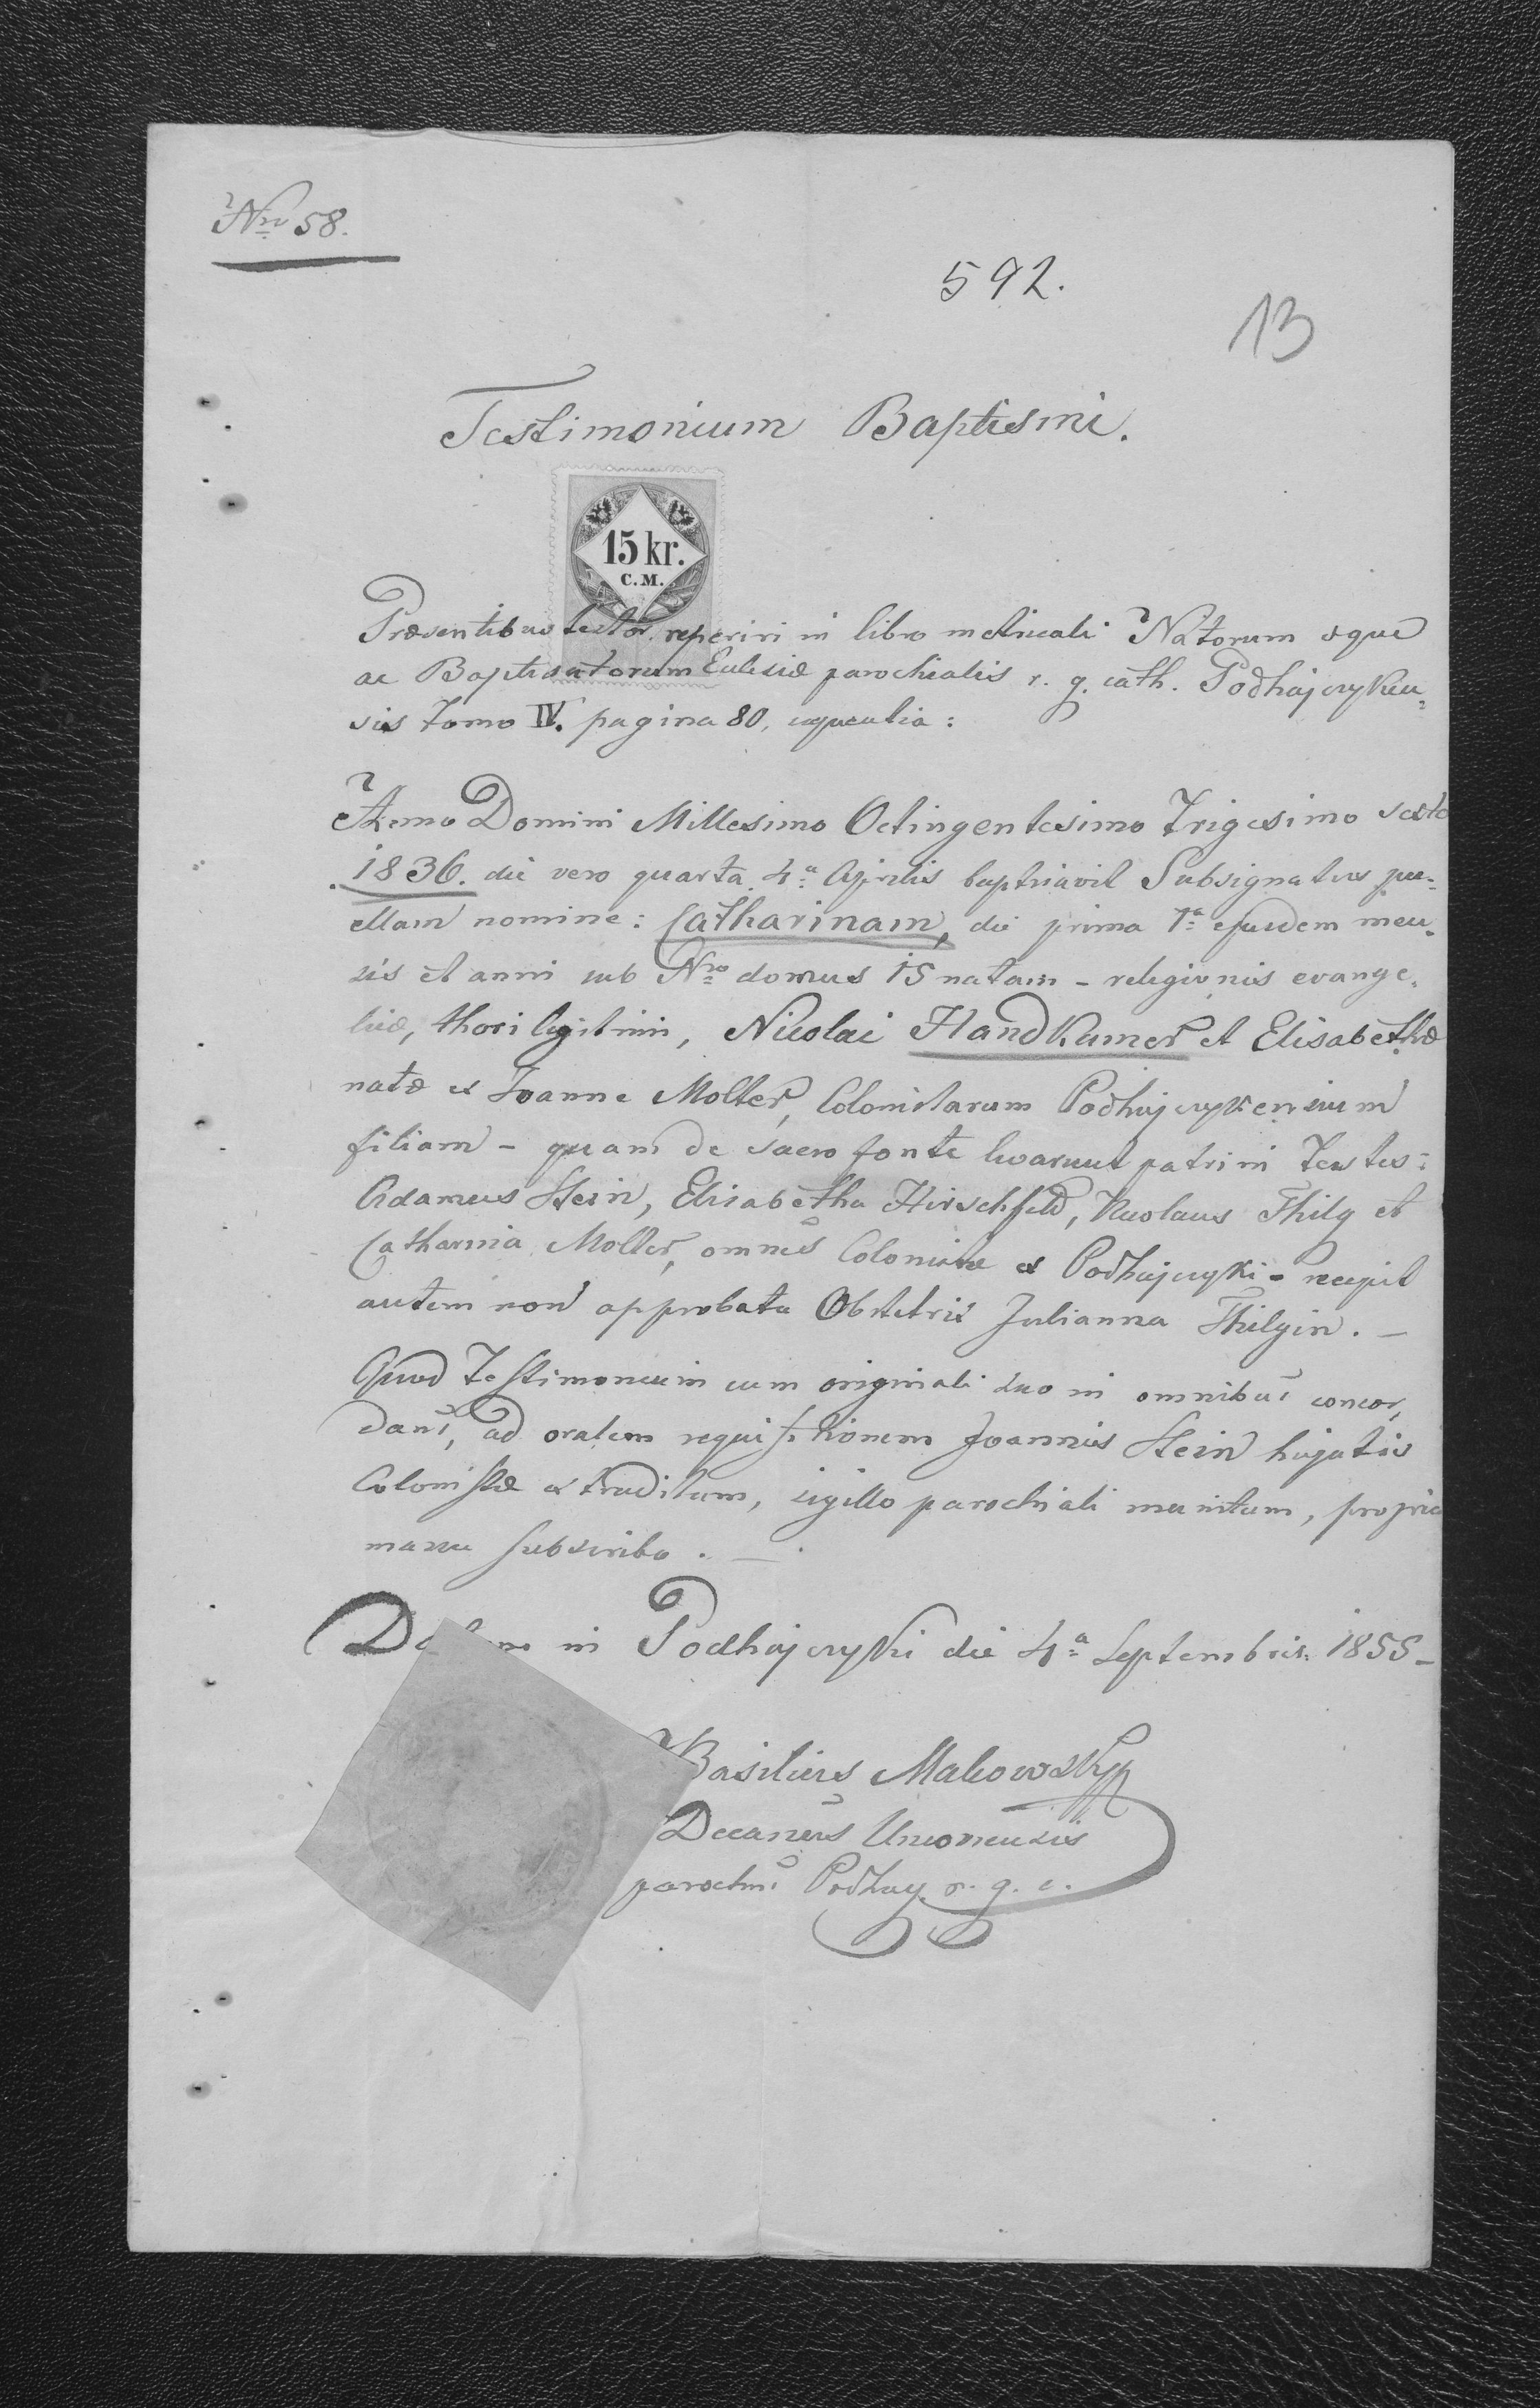 Nro 58.
592.
13
Testimonium Baptismi.
15 kr.
C.M.
Præsentibus testor reperiri in libro metricali Natorum æque
ac Baptisatorum Eclesiæ parochialis r. g. cath. Podhajczyken=
sis tomo IV. pagina 80, sequentia:
Anno Domini Millesimo Octingentesimo Trigesimo sexto
1836. die vero quarta 4ta Aprilis baptisavit Subsignatus pu=
ellam nomine: Catharinam, die prima 1a ejusdem men=
sis et anni sub Nro domus 15 natam - religionis evange=
licæ, thori legitimi, Nicolai Handkumer et Elisabethæ
natæ ex Joanne Molter, Colonistarum Podhajczykensium
filiam - quam de sacro fonte levarunt patrini testes:
Adamus Stein, Elisabetha Hirschfeld, Nicolaus Thilg et
Catharina Molter, omnes Colonistæ ex Podhajczyki - recepit
autem non approbata Obstetrix Julianna Thilgin. —
Quod Testimonium cum originali suo in omnibus concor=
dans, ad oralem requisitionem Joannis Stein hujatis
Colonistæ extraditum, sigillo parochiali munitum, propria
manu subscribo. —
in Podhajczyki die 4a Septembris 1855 -
Basilius Makowsky
Decanus Uncoviensis
parochus Podhay. r. g. c.